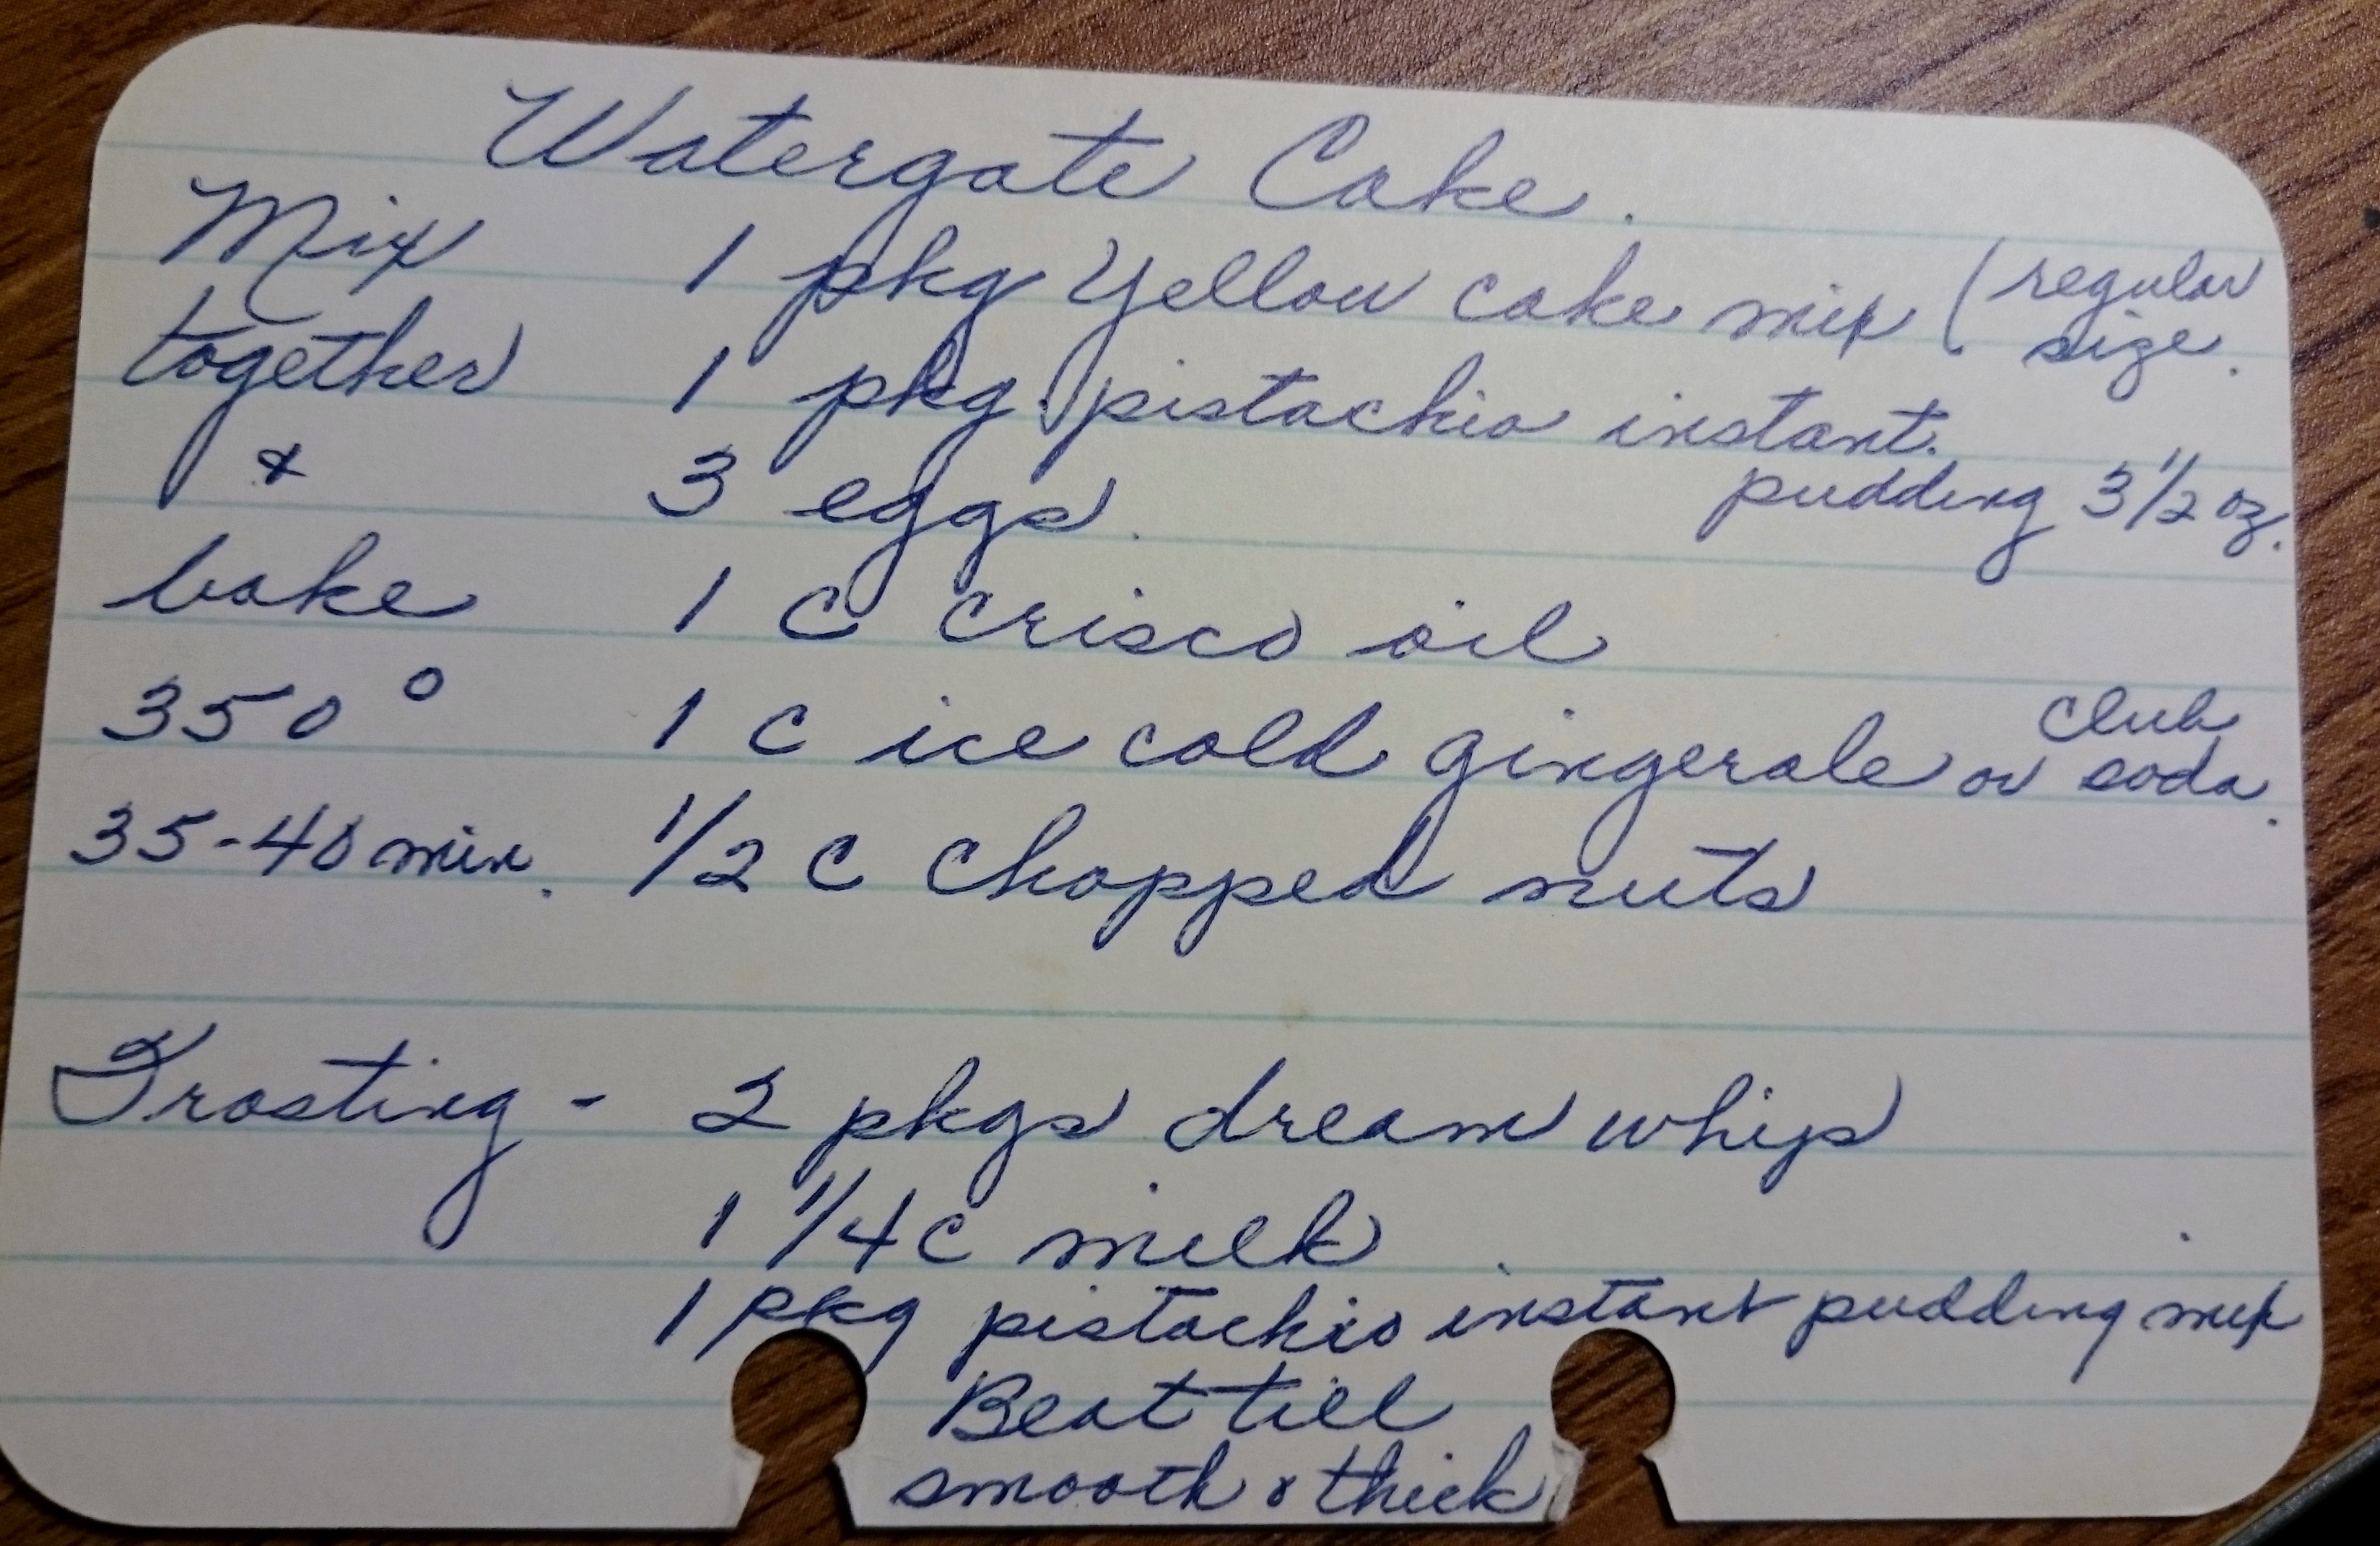 Watergate Cake.
Mix 1 pkg Yellow cake mix (regular
size.
together 1 pkg. pistachio instant.
pudding 3 1/2 oz.
& 3 eggs.
bake 1 C crisco oil
350° 1 C ice cold gingerale or club
soda.
35-40 min. 1/2 C chopped nuts
Frosting - 2 pkgs dream whip
1 1/4 C milk
1 pkg pistachio instant pudding mix
Beat till
smooth & thick